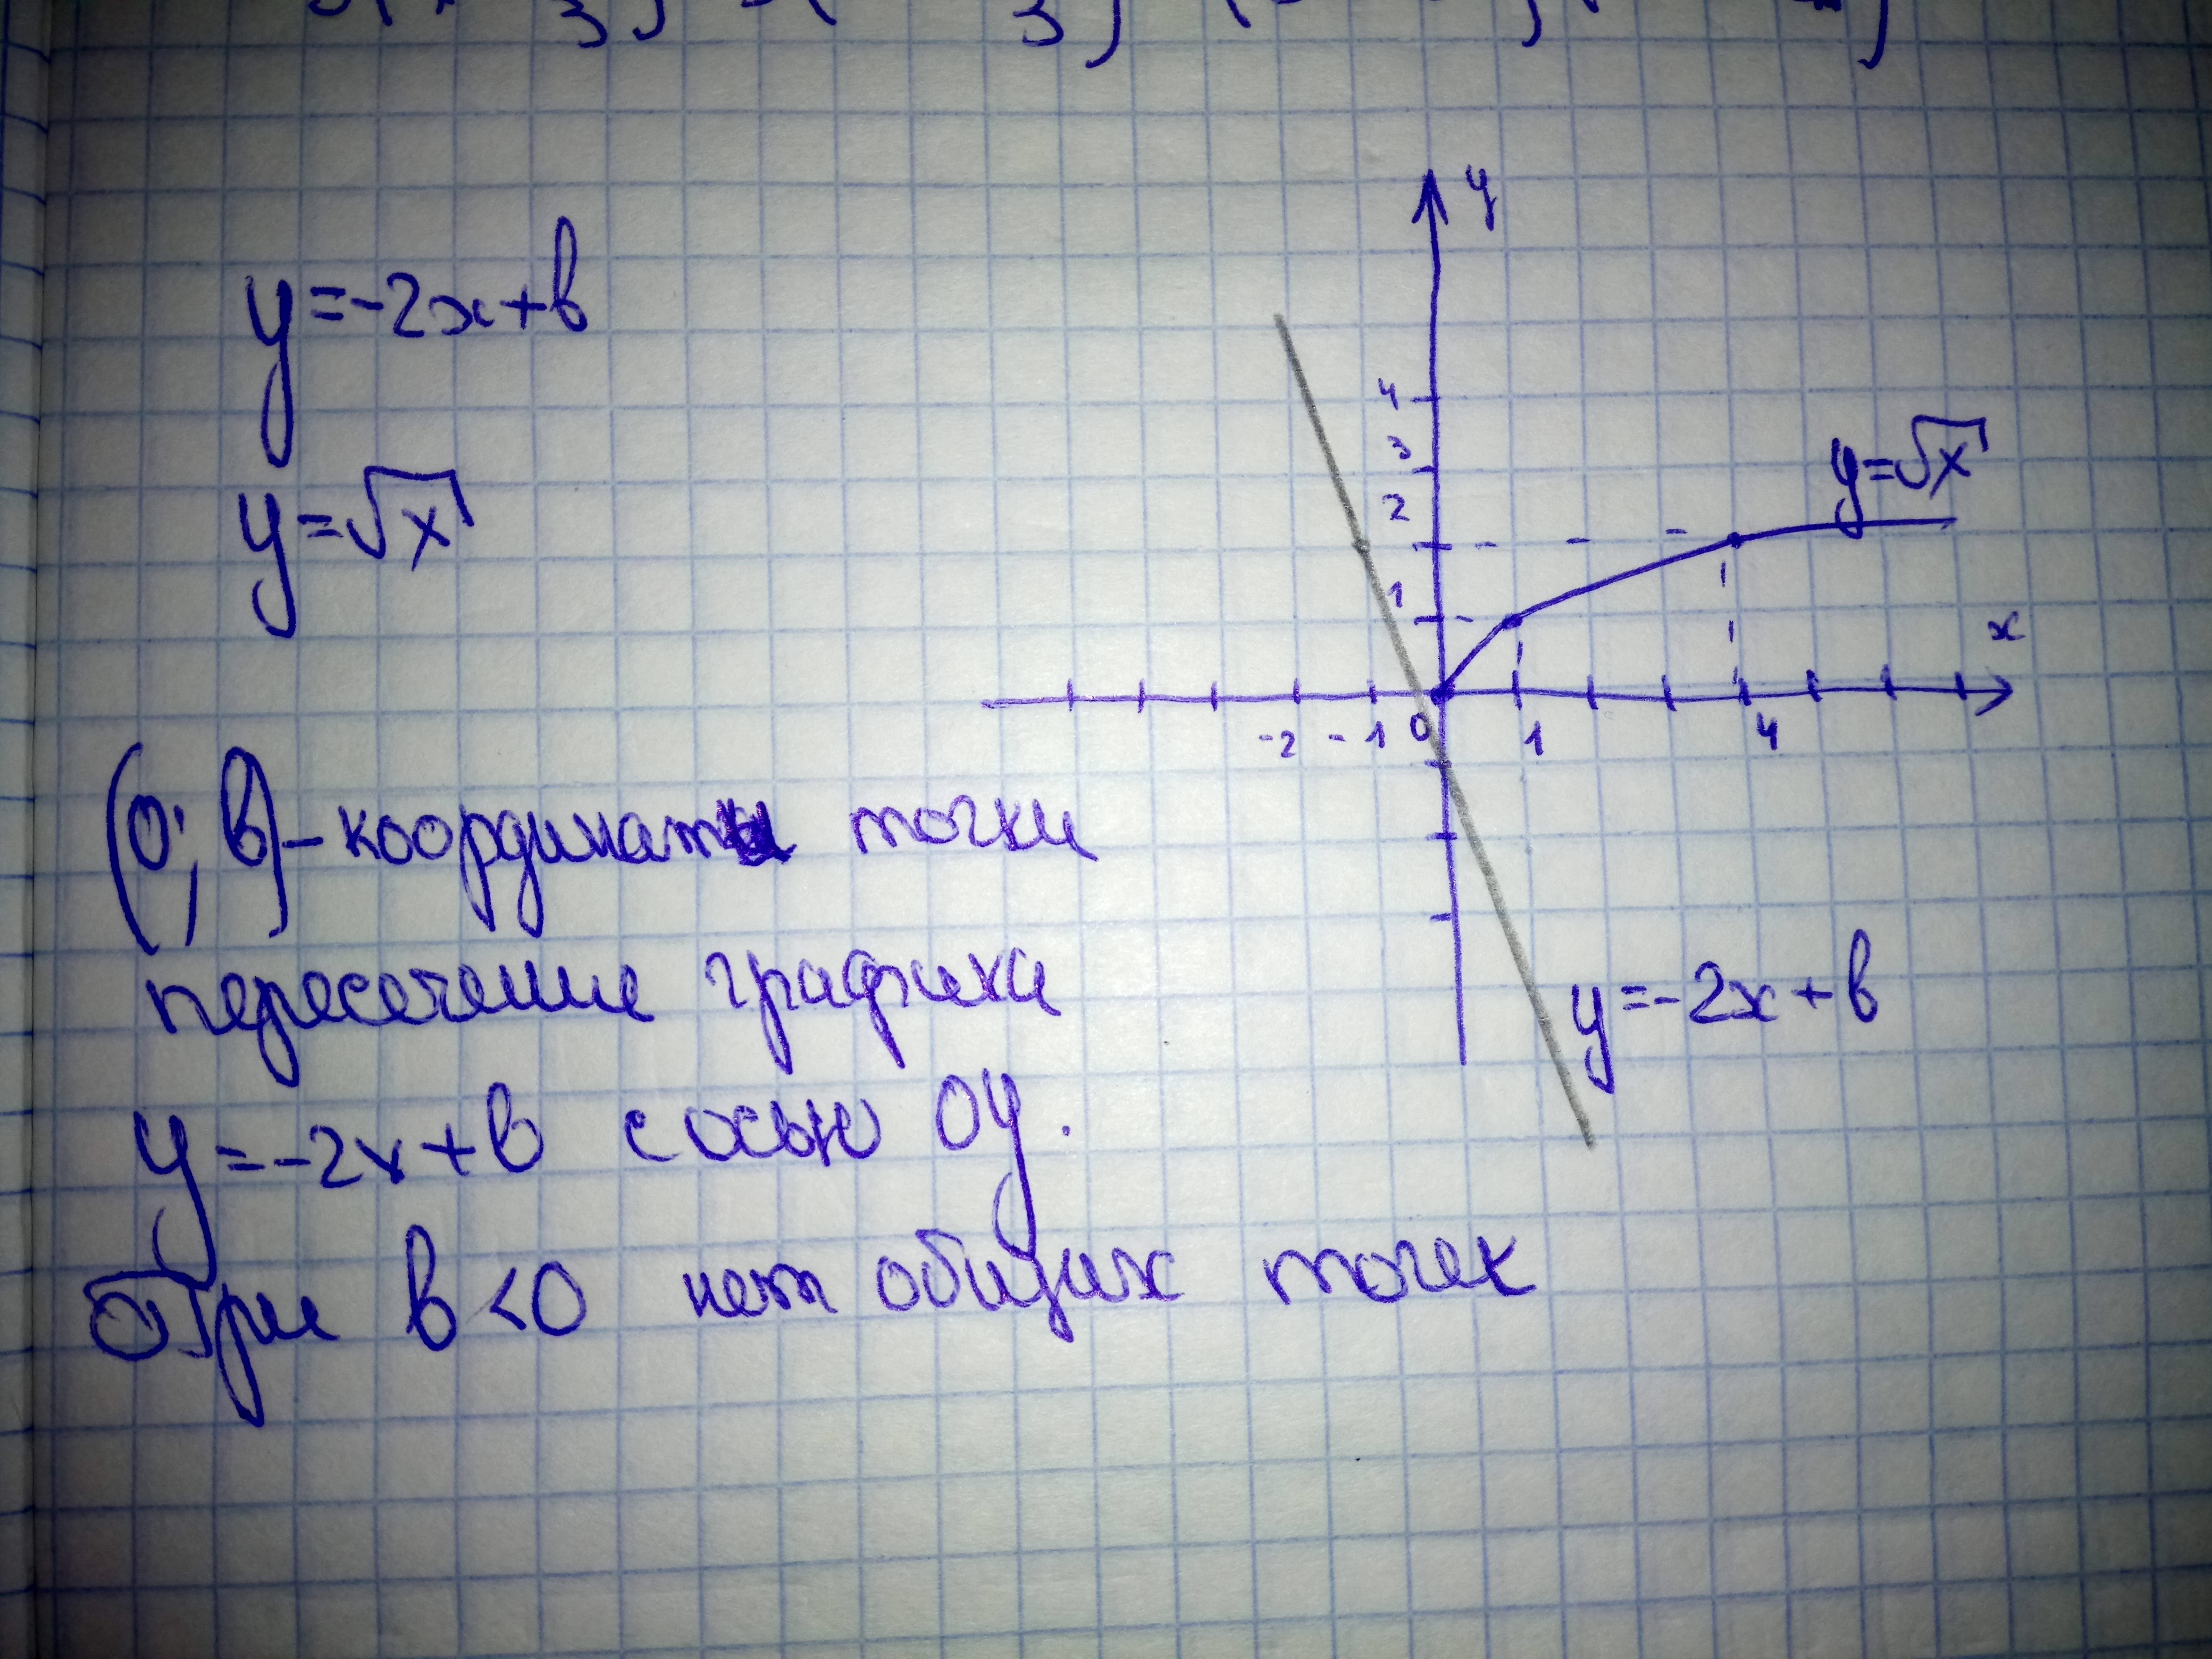 y=-2x+b
y=√x
(0; b)-координаты точки
пересечение графика
y=-2x+b с осью OY.
При b<0 нет общих точек
y
4
3
2
1
y=√x
x
-2 -1 0 1 4
y=-2x+b